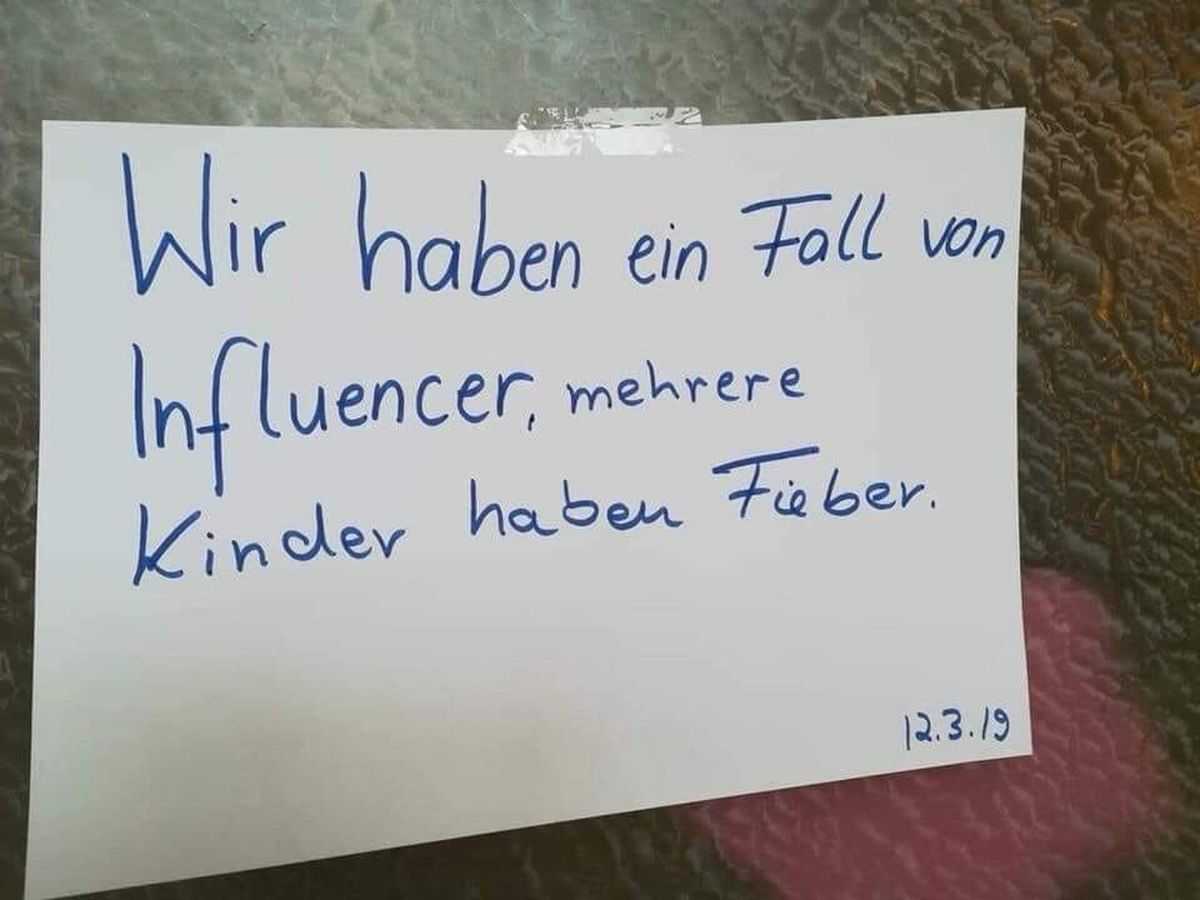 Wir haben ein Fall von
Influencer, mehrere
Kinder haben Fieber.
12.3.19